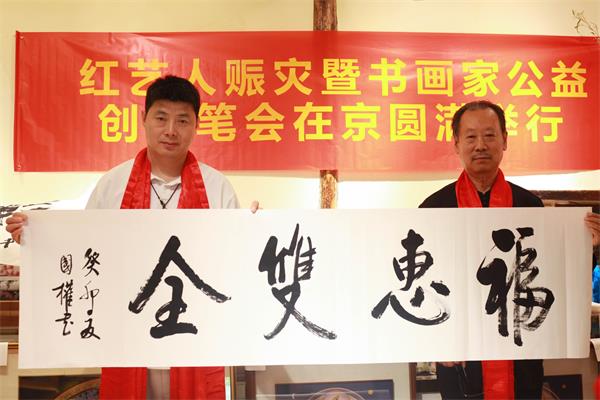 红艺人赈灾暨书画家公益
创笔会在京圆满举行
福惠雙全
癸卯夏
國權书